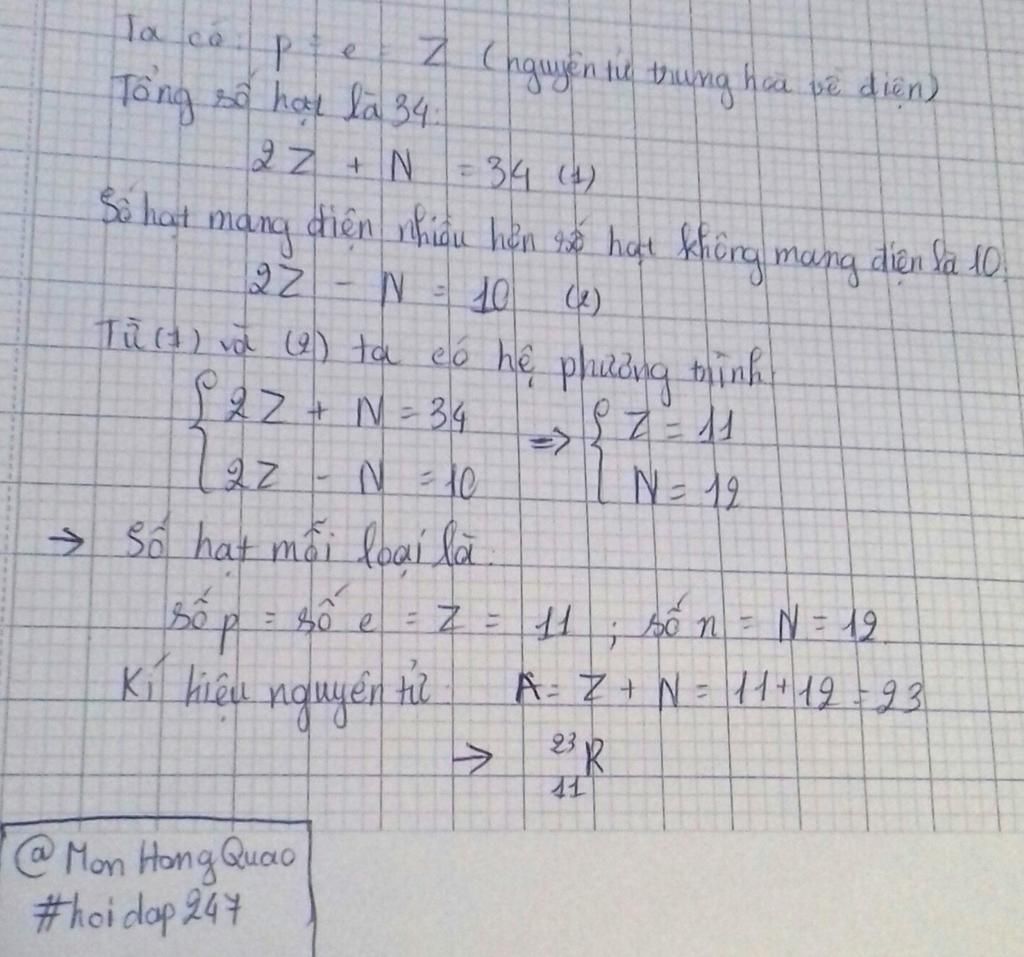 Ta có: p = e = Z (nguyên tử trung hoà về điện)
Tổng số hạt là 34:
2Z + N = 34 (1)
Số hạt mang điện nhiều hơn số hạt không mang điện là 10
2Z - N = 10 (2)
Từ (1) và (2) ta có hệ phương trình
{ 2Z + N = 34 => { Z = 11
2Z - N = 10 N = 12
→ Số hạt mỗi loại là:
số p = số e = Z = 11 ; số n = N = 12
Kí hiệu nguyên tử A = Z + N = 11 + 12 = 23
→ ²³₁₁R
@MonHongQuao
#hoidap247